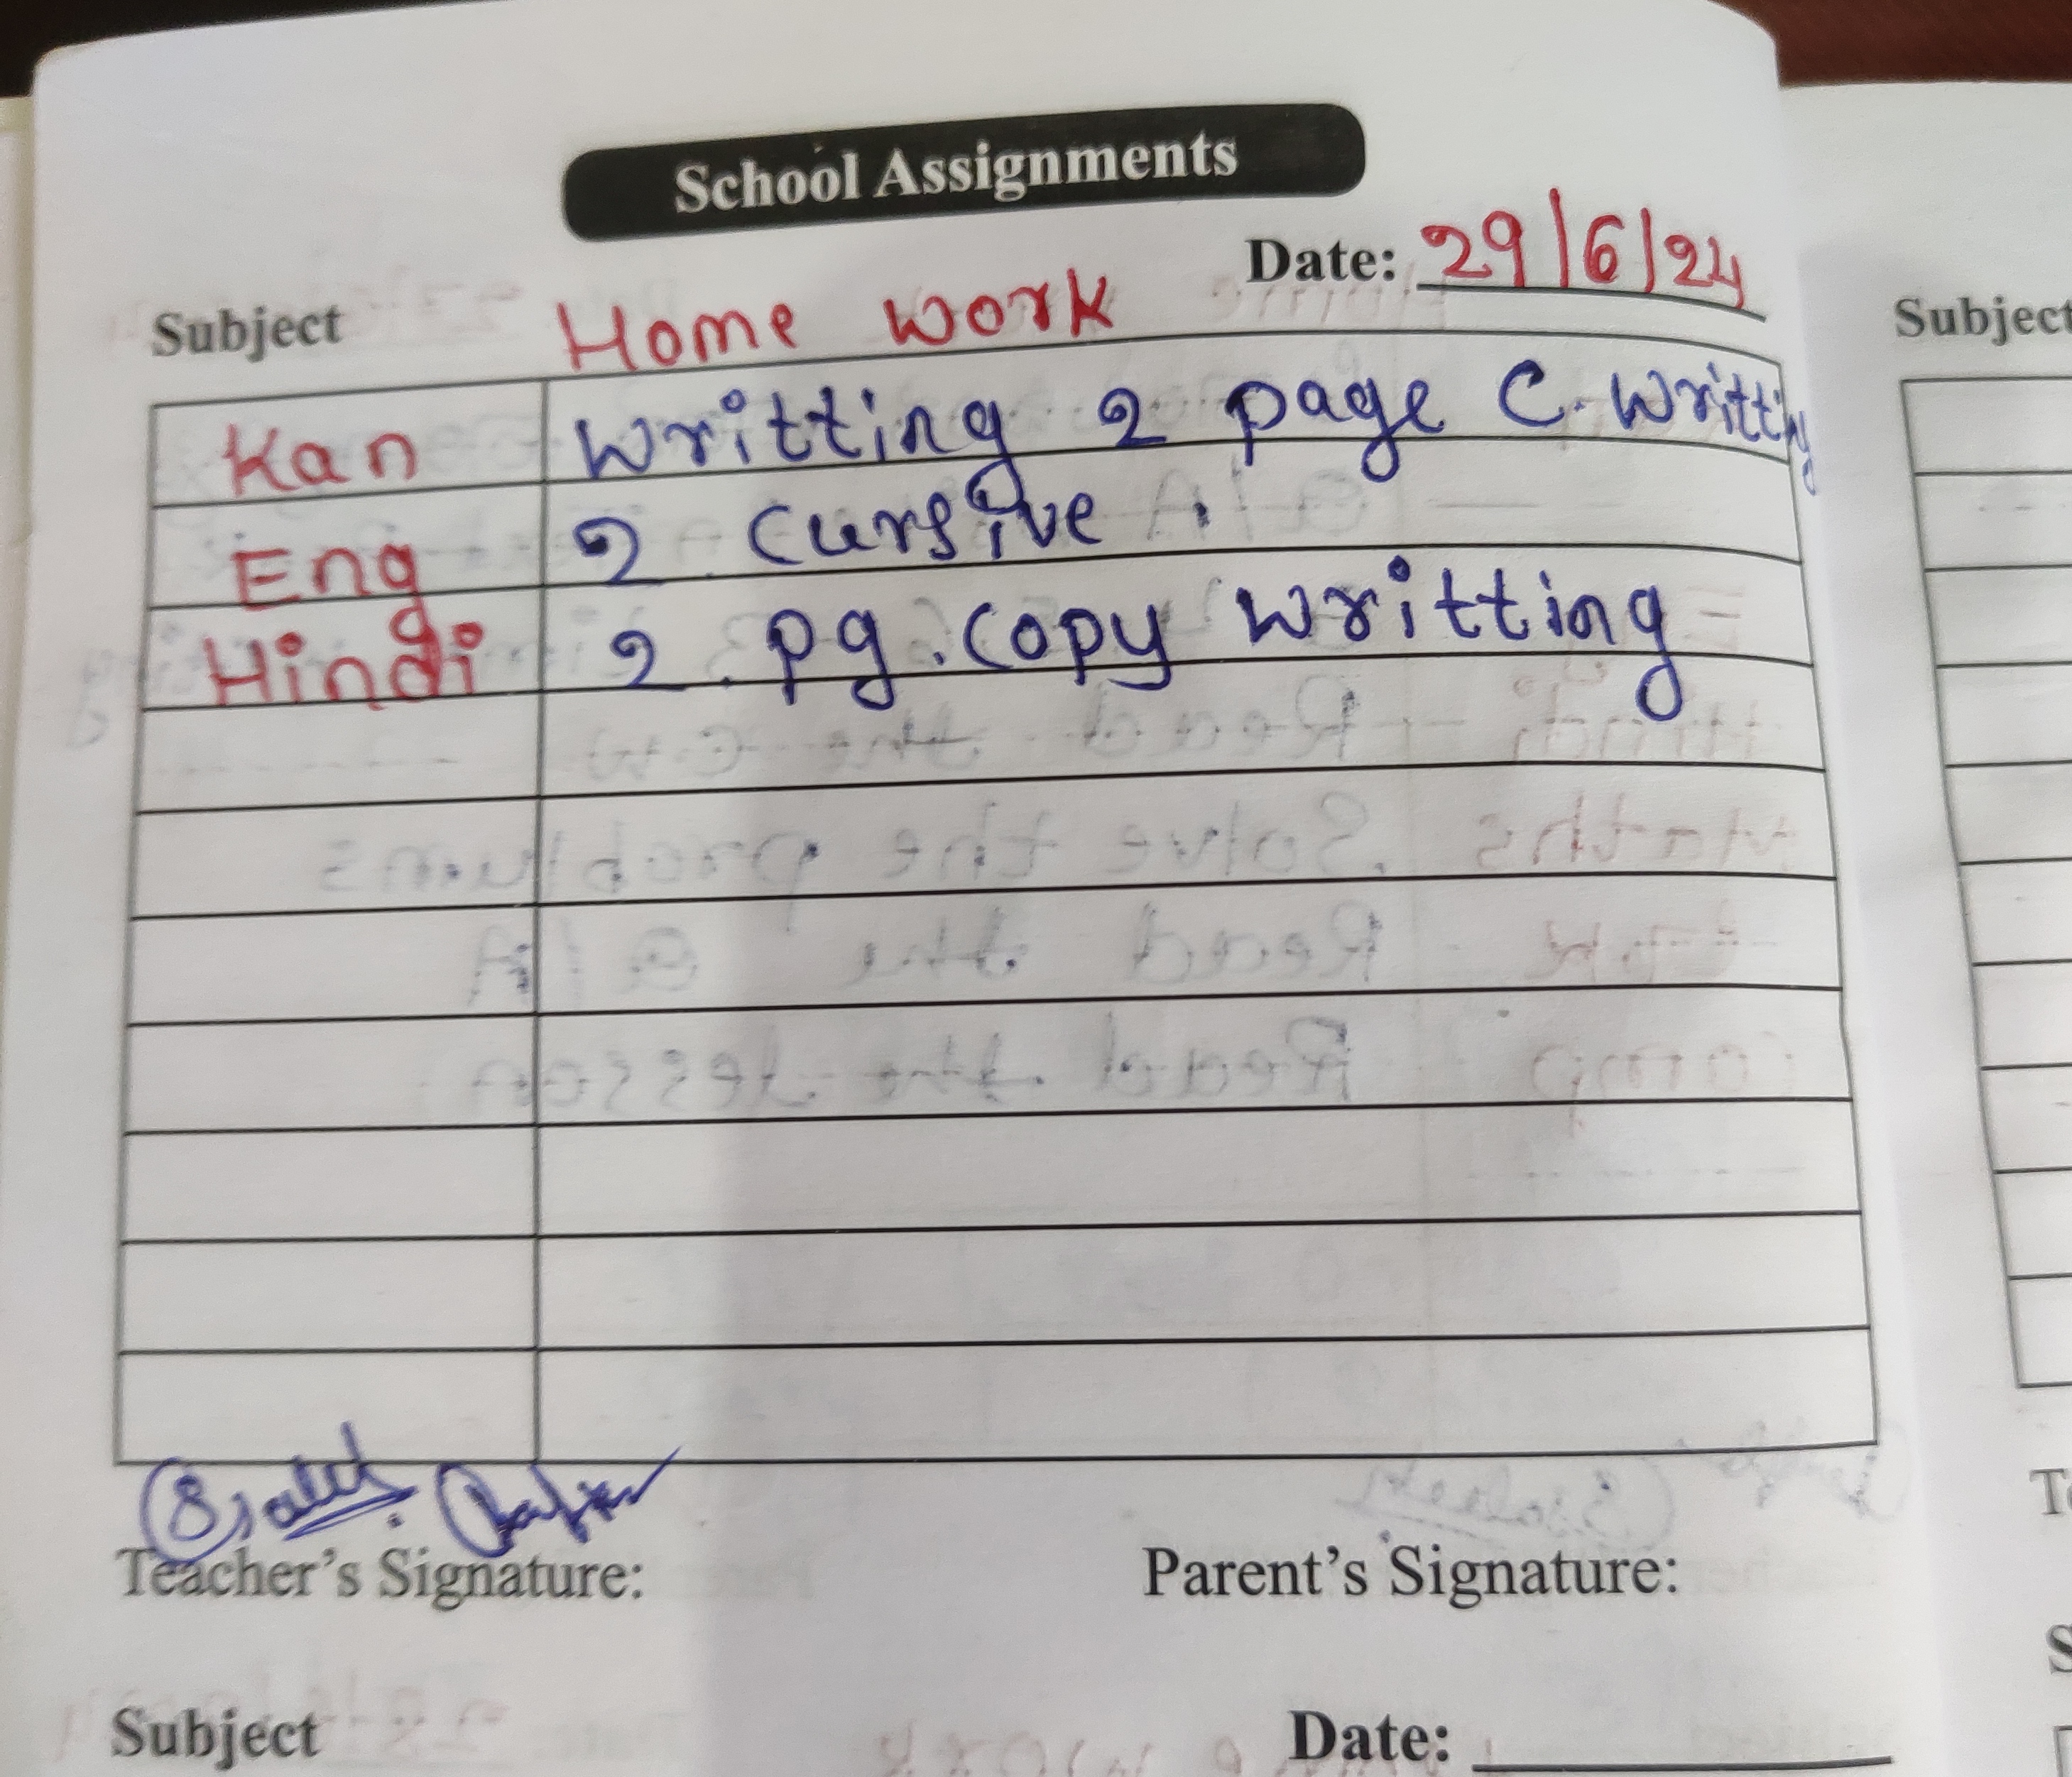 School Assignments
Date: 29/6/24
Subject Home work
Kan Writting 2 page C. Writting
Eng 2 cursive.
Hindi 2. pg. copy writting
Teacher's Signature: Parent's Signature:
Subject Date:
Subject